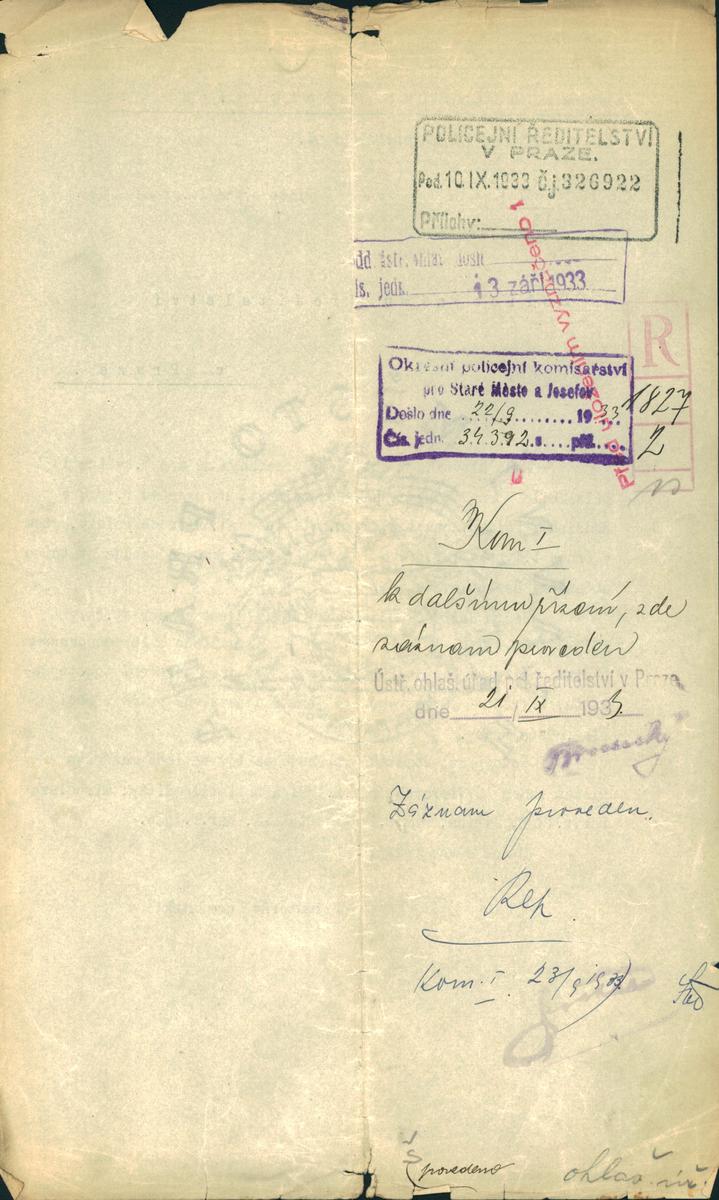 POLICEJNÍ ŘEDITELSTVÍ
V PRAZE.
Pod. 10.IX.1933 Č.j. 326922
Přílohy:
odd. ústř. ohlaš. došlo
čís. jedn. 13 září 1933
Před uložením vyznačeno 1
R
Okresní policejní komisařství
pro Staré Město a Josefov
Došlo dne 22/9 1933
Čís. jedn. 34.392. s. příl.
1827
2
Kom I
k dalšímu řízení, zde
záznam proveden
Ústř. ohlaš. úřad pol. ředitelství v Praze
dne 21 / IX 1933
Záznam proveden.
Rep.
Kom. I. 23/9 1933
provedeno
ohlaš. úř.